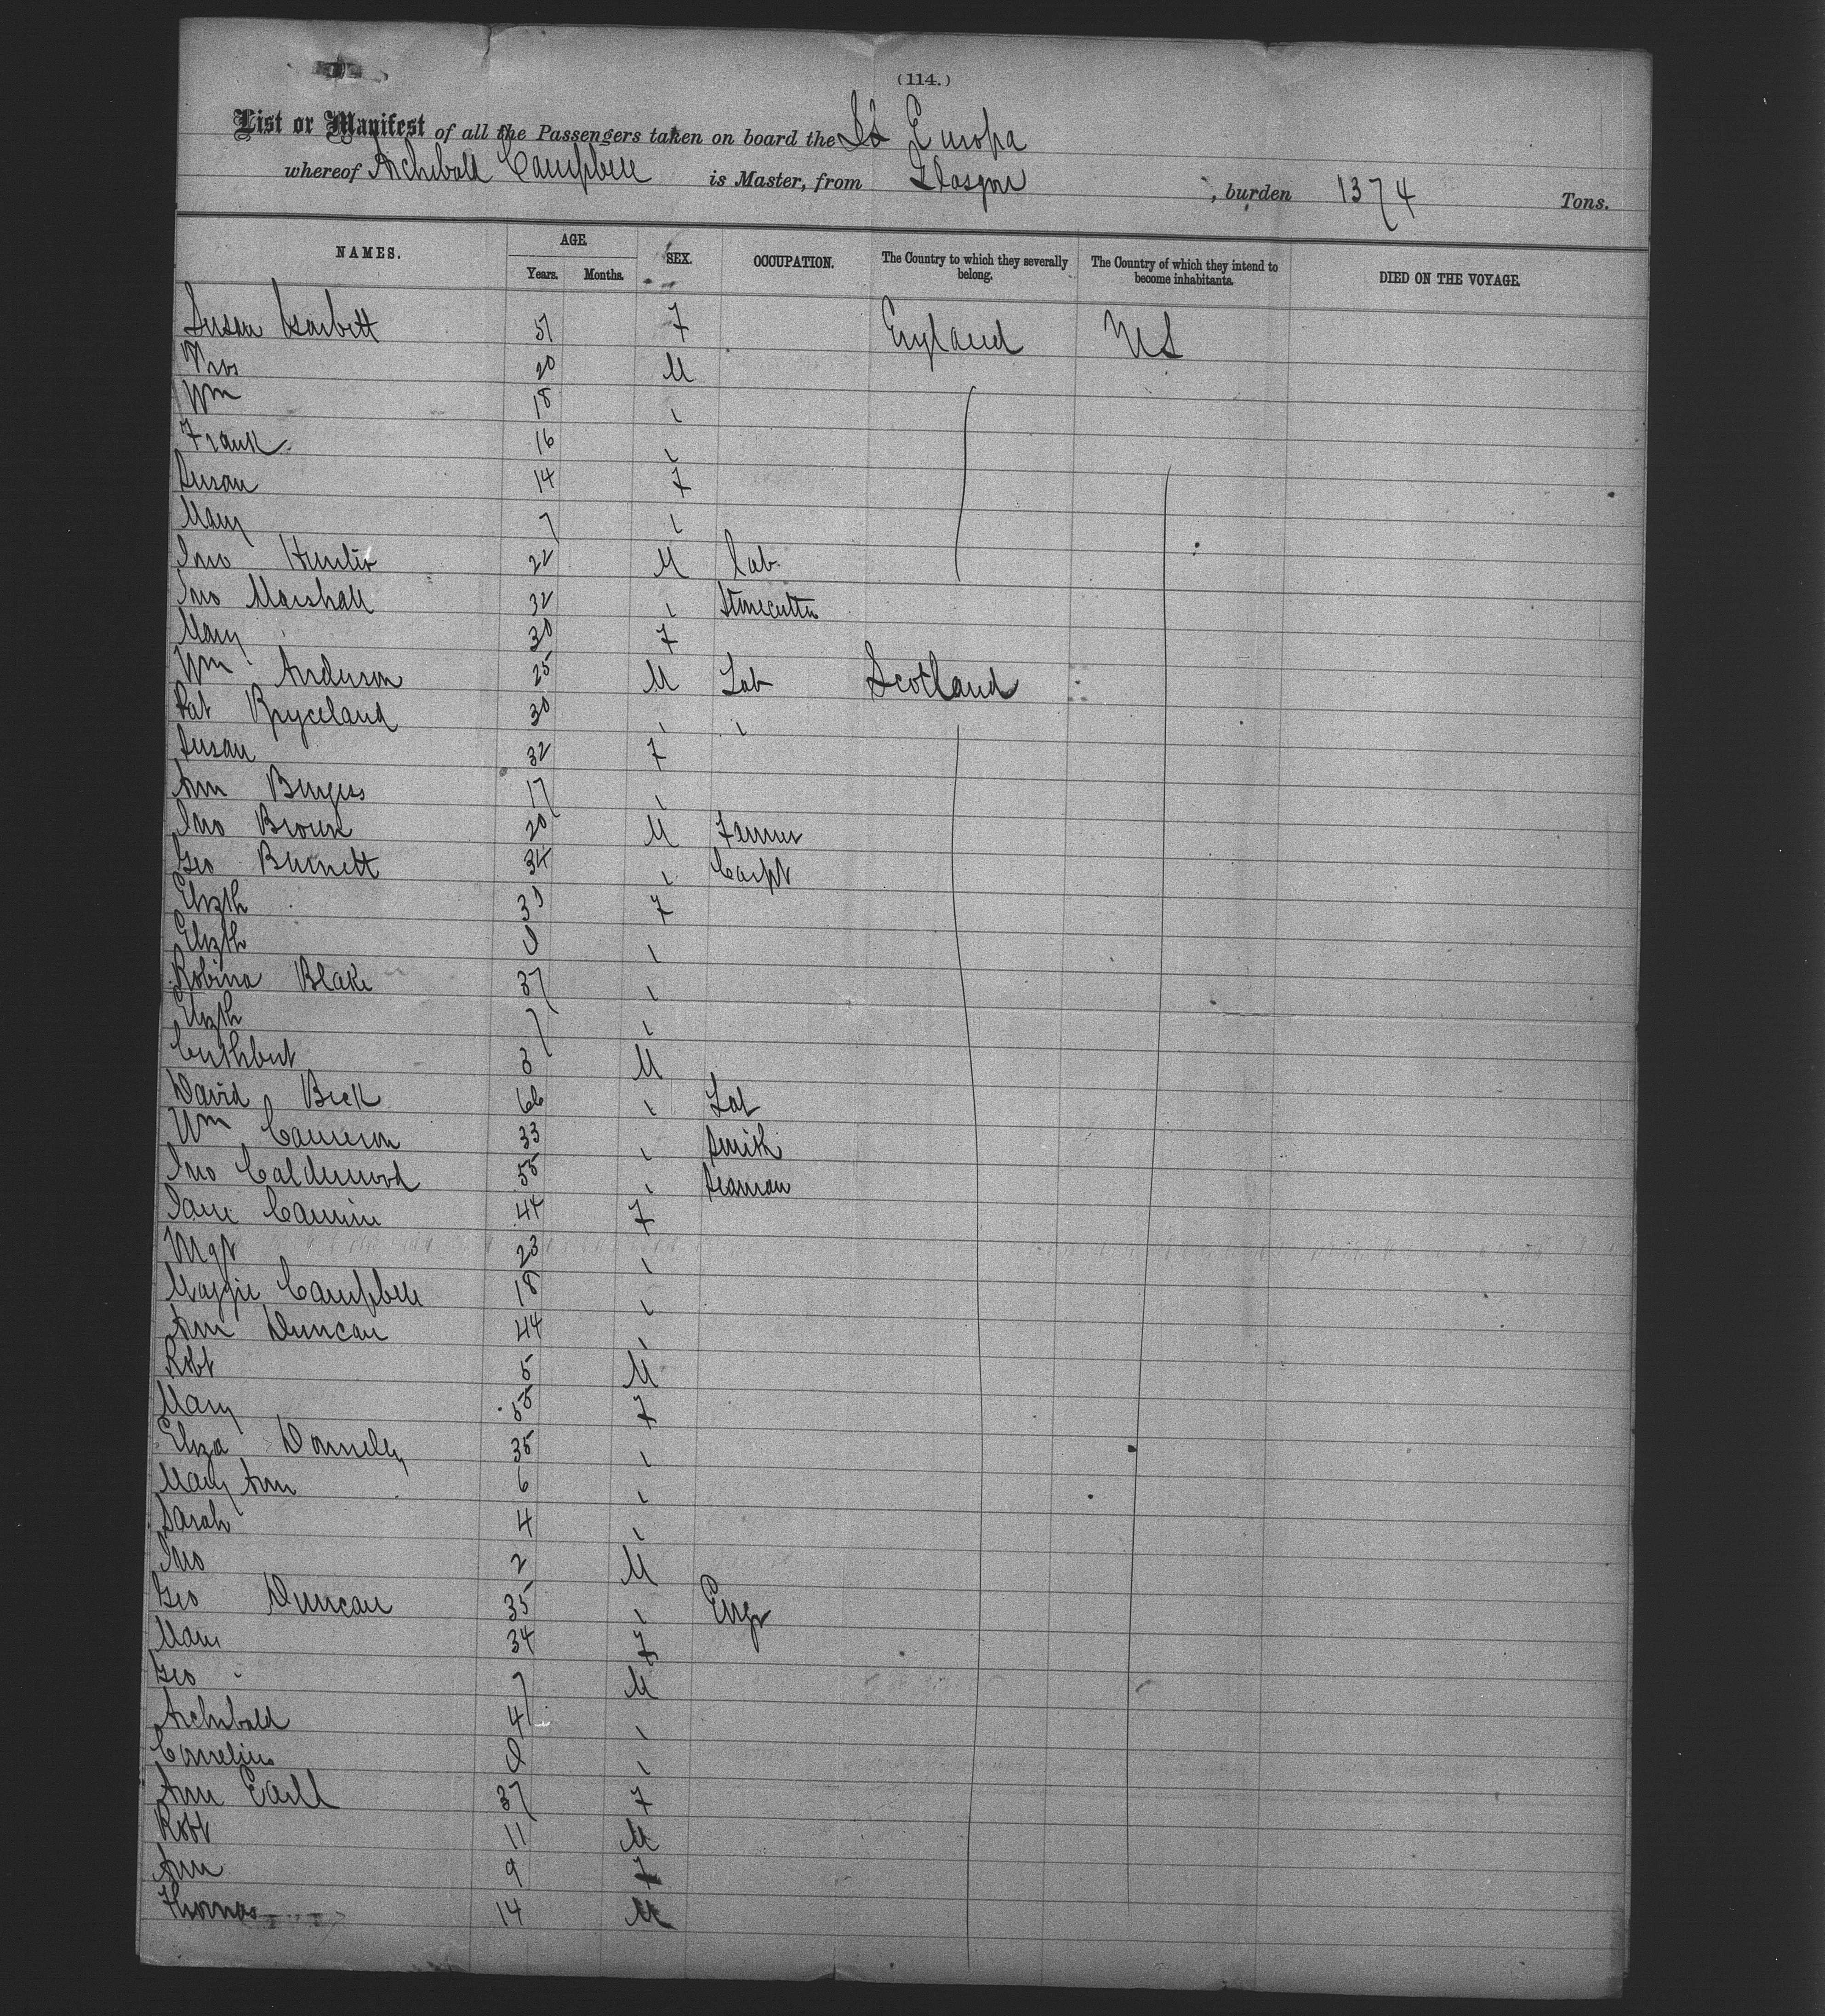 (114.)
List or Manifest of all the Passengers taken on board the SS Europa
whereof Archibald Campbell is Master, from Glasgow, burden 1374 Tons.
NAMES. AGE. SEX. OCCUPATION. The Country to which they severally belong. The Country of which they intend to become inhabitants. DIED ON THE VOYAGE.
Years. Months.
Susan 51 F England US
Thos 20 M
Wm 18 "
Frank 16 "
Susan 14 F
Mary 7 "
Jno Hunter 22 M Lab
Jno Marshall 32 " Stonecutter
Mary 30 F
Wm Anderson 25 M Lab Scotland
Pat Bryceland 30 " "
Susan 32 F
Ann Burgess 17 "
Jno Brown 20 M Farmer
Geo Burnett 34 " Carpt
Elizth F
Elizth "
Robina Blake 37 "
Elizth 7 "
Cuthbert 3 M
David Beck 66 " Lab
Wm Cameron 33 " Smith
Jno Calderwood 55 " Seaman
Jane 44 F
Mgt 23 "
Maggie Campbell 18 "
Ann Duncan 44 "
Robt 5 M
Mary 55 F
Eliza Donnelly 35 "
Mary Ann 6 "
Sarah 4 "
Jno 2 M
Geo Duncan 35 " Engr
Mary 34 F
Geo 7 M
Archibald 4 "
Cornelius "
Ann Earll 37 F
Robt 11 M
Ann 9 F
Thomas 14 M